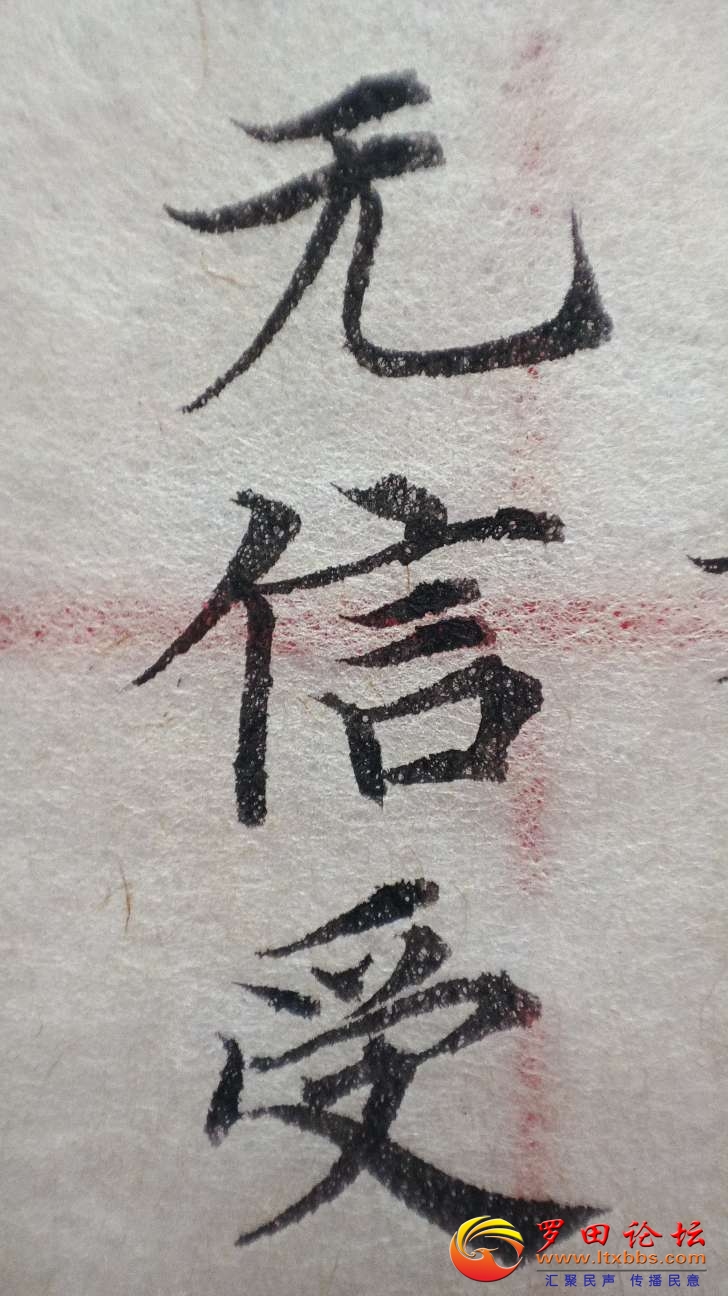 无信受
罗田论坛
www.ltxbbs.com
汇聚民声 传播民意